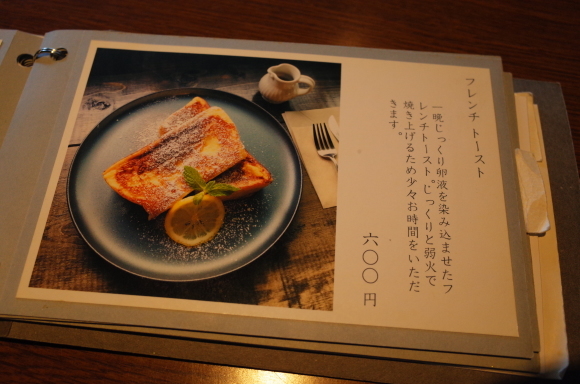 フレンチトースト
一晩じっくり卵液を染み込ませたフ
レンチトースト。じっくりと弱火で
焼き上げるため少々お時間をいただ
きます。
六〇〇円